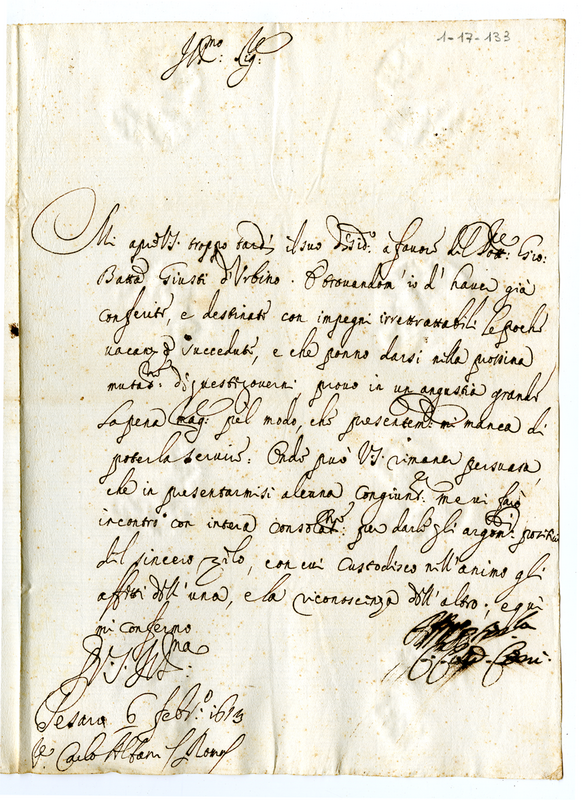 1-17-133
Ill.mo Sig.re
Mi apre V.S. troppo tardi il suo desid.o a favore del Dott.re Gio:
Batta Giusti d'Urbino. E trovandom'io d'haver già
conferite, e destinate con impegni irretrattabili le poche
vacanze succedute, e che ponno darsi nella prossima
mutaz.ne di questi governi provo in un angustia grande
la pena mag.re pel modo, che presentem.te mi manca di
poterla servire. Onde può V.S. rimaner persuasa,
che in presentarmisi alcuna congiunt.ra me ne farò
incontro con intera consolat.ne per darle gli argom.ti
del sincero zelo, con cui custodisco nell'animo gli
affetti dell'una, e la riconoscenza dell'altro; e qui
mi confermo
D. V.S. Ill.ma
Pesaro 6 febr.o 1673
Carlo Albani Roma